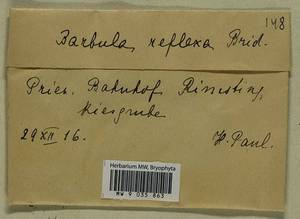 148
Barbula reflexa Brid.
Prien. Bahnhof Rimsting,
Kiesgrube
29 XII 16. H. Paul.
Herbarium MW, Bryophyta
MW 9 035 863